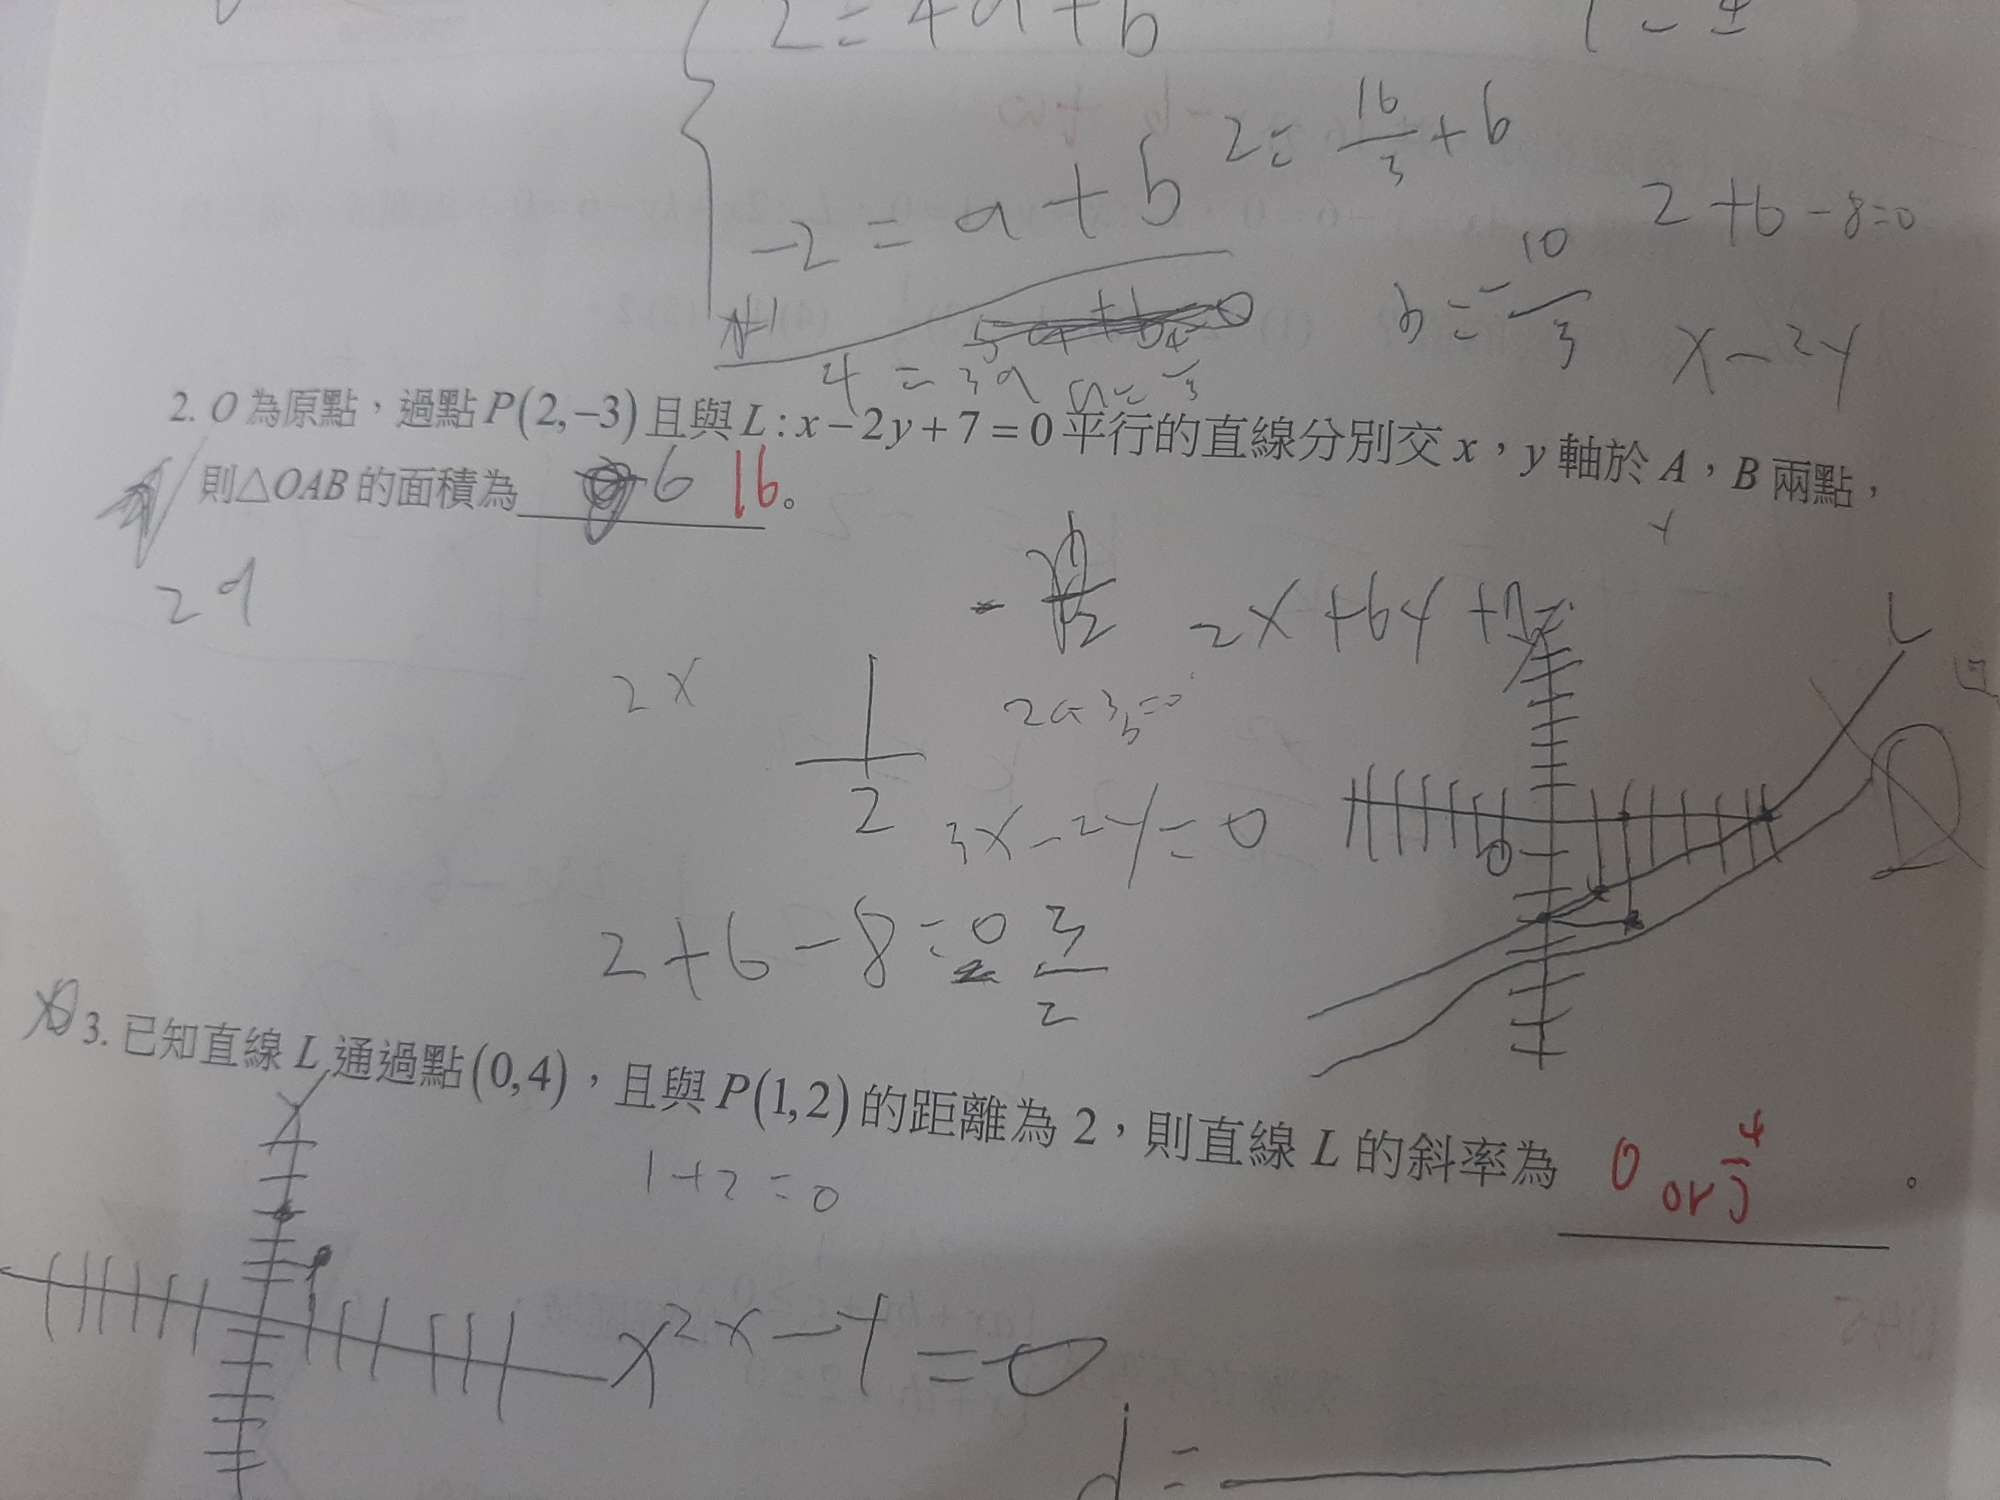 2 = 4a + b
-2 = a + b
2 = 16/3 + b
2 + 6 - 8 = 0
b = -10/3
x - 2y
4 = 3a
2. O 為原點，過點 P(2,-3) 且與 L : x - 2y + 7 = 0 平行的直線分別交 x，y 軸於 A，B 兩點，
則△OAB 的面積為 6 16。
2x
1
2
2a - 3b = 0
2x + 6y +
L
3x - 2y = 0
0
2 + 6 - 8 = 0
3/2
3. 已知直線 L 通過點 (0,4)，且與 P(1,2) 的距離為 2，則直線 L 的斜率為 0 or 4/3 。
1 + 2 = 0
x 2x - y = 0
d =